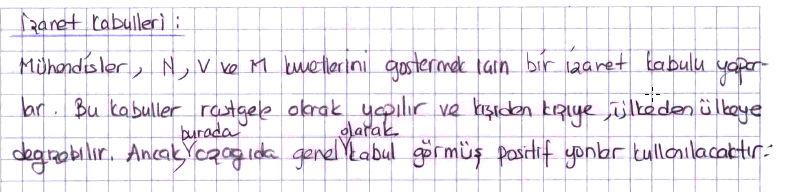 İşaret kabulleri :
Mühendisler, N, V ve M kuvvetlerini göstermek için bir işaret kabulu yapar-
lar. Bu kabuller rastgele olarak yapılır ve kişiden kişiye, ülkeden ülkeye
değişebilir. Ancak, burada aşağıda genel olarak kabul görmüş pozitif yönler kullanılacaktır: